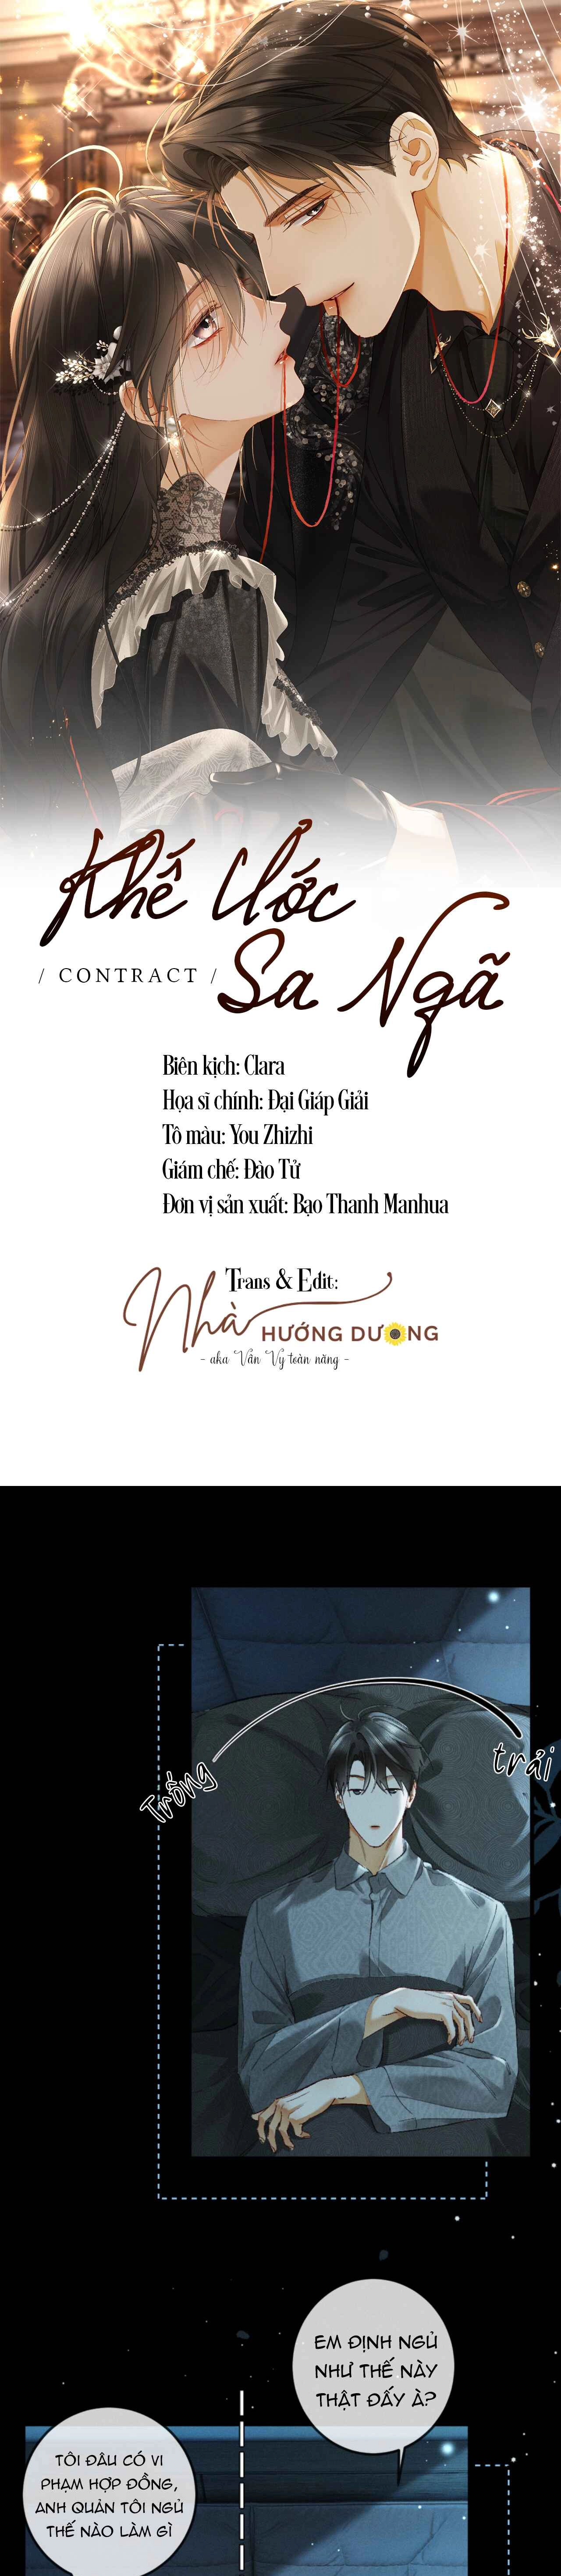 Khế Ước
/ CONTRACT /
Sa Ngã
Biên kịch: Clara
Họa sĩ chính: Đại Giáp Giải
Tô màu: You Zhizhi
Giám chế: Đào Tử
Đơn vị sản xuất: Bạo Thanh Manhua
Trans & Edit:
Nhà HƯỚNG DƯƠNG
- aka Vân Vy toàn năng -
Trống
trải
EM ĐỊNH NGỦ
NHƯ THẾ NÀY
THẬT ĐẤY À?
TÔI ĐÂU CÓ VI
PHẠM HỢP ĐỒNG,
ANH QUẢN TÔI NGỦ
THẾ NÀO LÀM GÌ